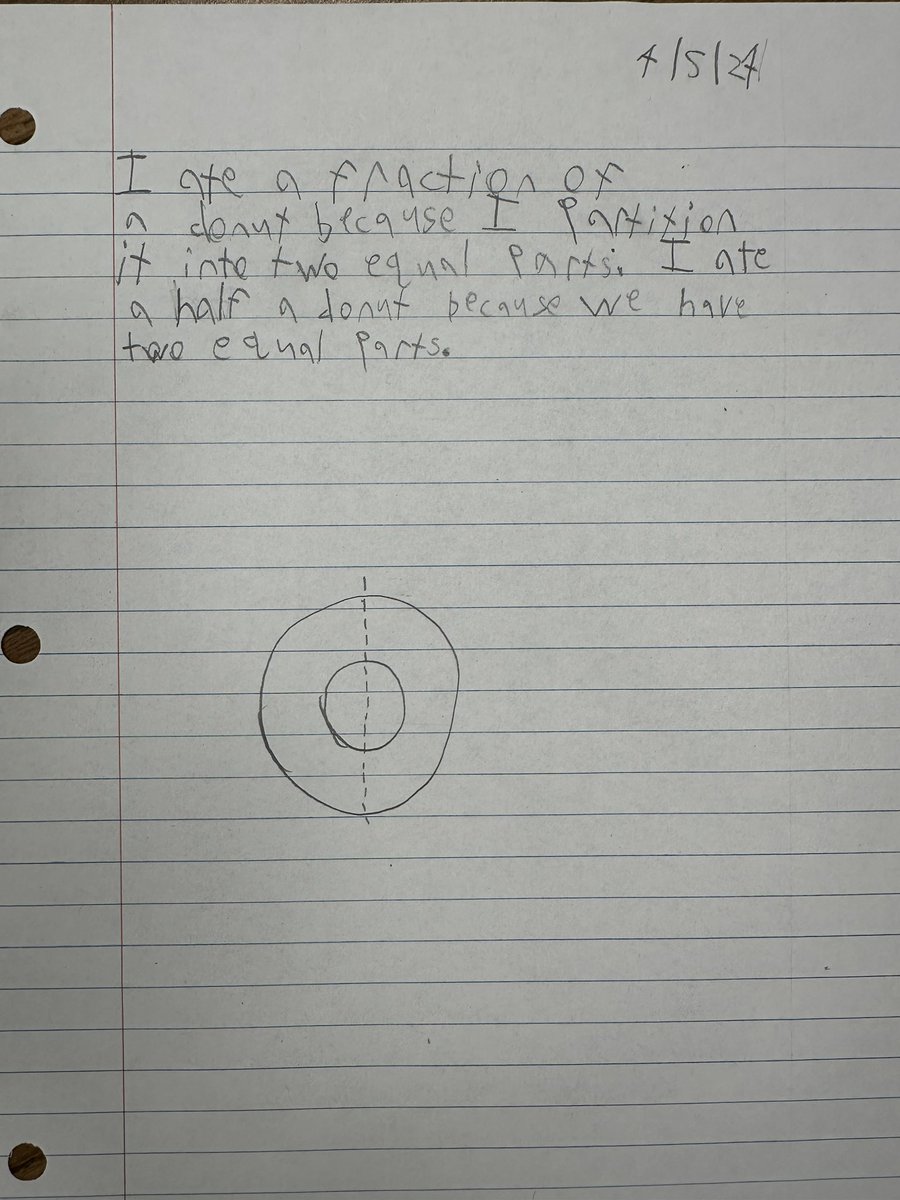 4/5/24
I ate a fraction of
a donut because I Partition
it into two equal Parts. I ate
a half a donut because we have
two equal Parts.